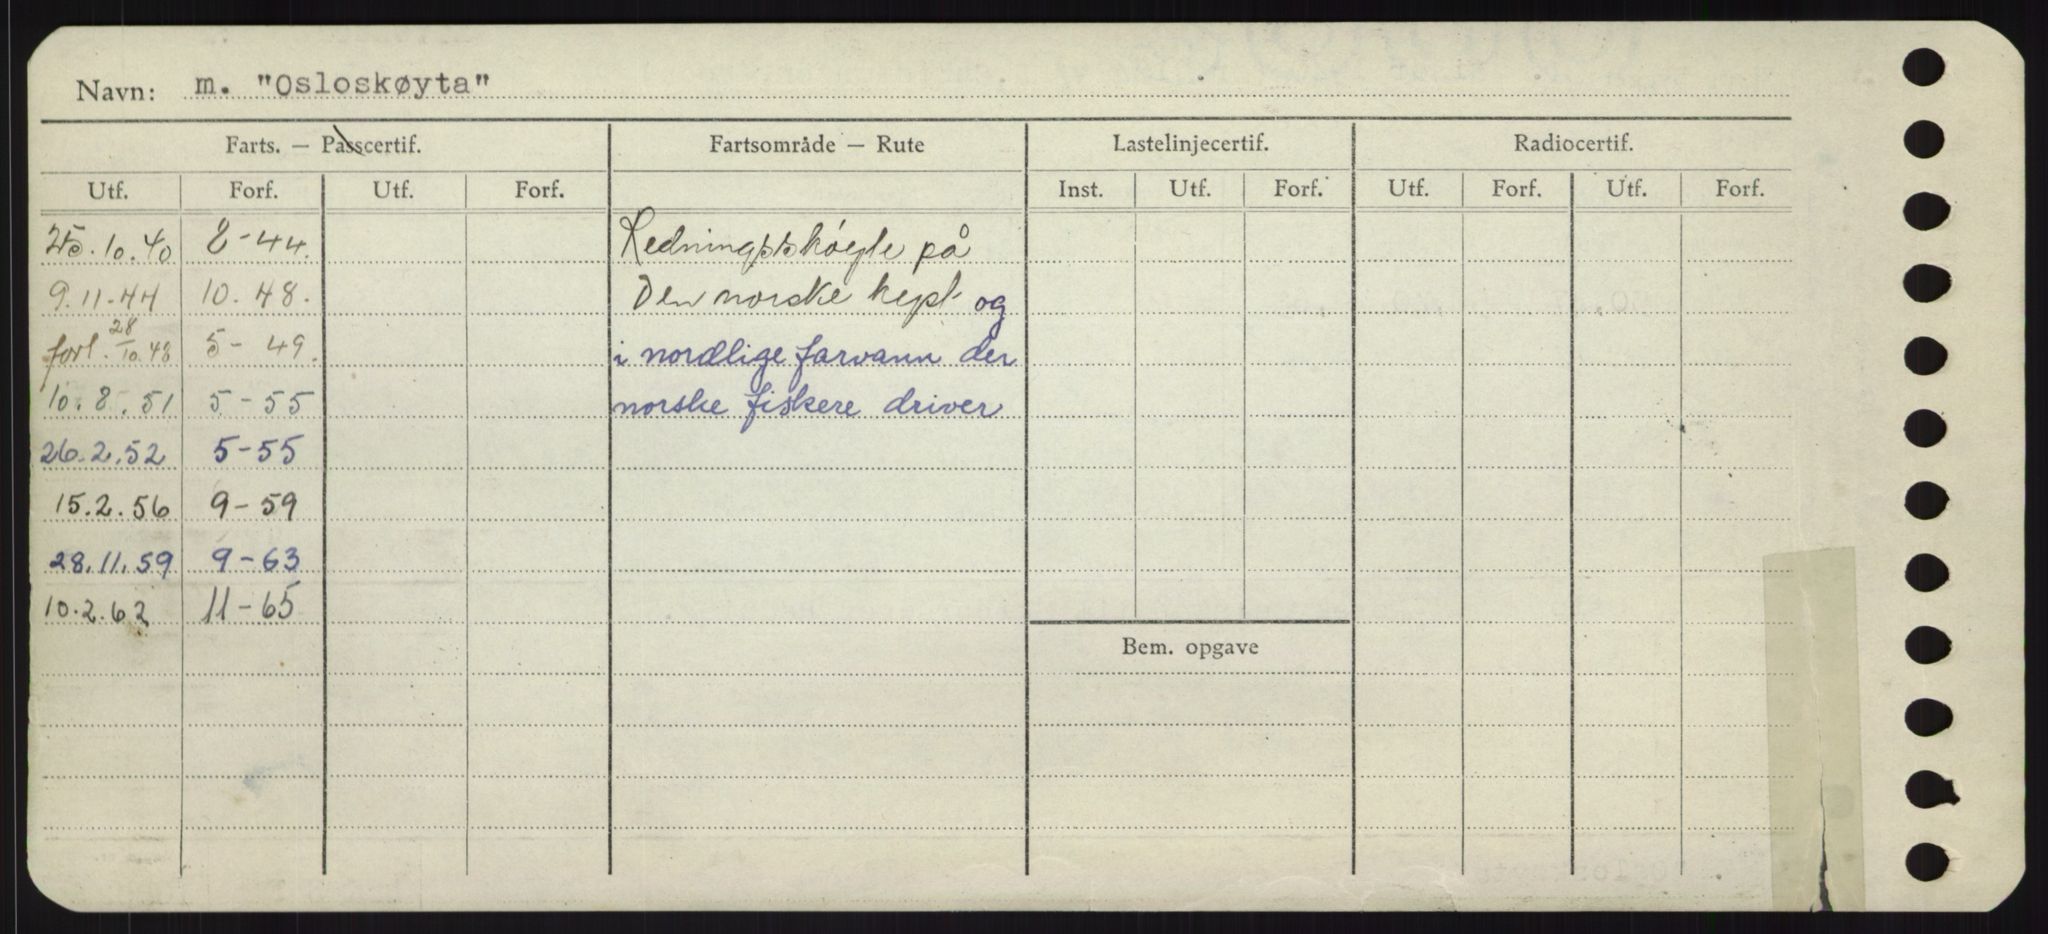 Navn: m. "Osloskøyta"
Farts. — Passcertif. Fartsområde — Rute Lastelinjecertif. Radiocertif.
Utf. Forf. Utf. Forf. Inst. Utf. Forf. Utf. Forf. Utf. Forf.
25.10.40 8-44. Redningsskøyte på
9.11.44 10.48. Den norske kyst og
forl. 28/10.48 5-49. i nordlige farvann der
10.8.51 5-55 norske fiskere driver
26.2.52 5-55
15.2.56 9-59
28.11.59 9-63
10.2.62 11-65
Bem. opgave